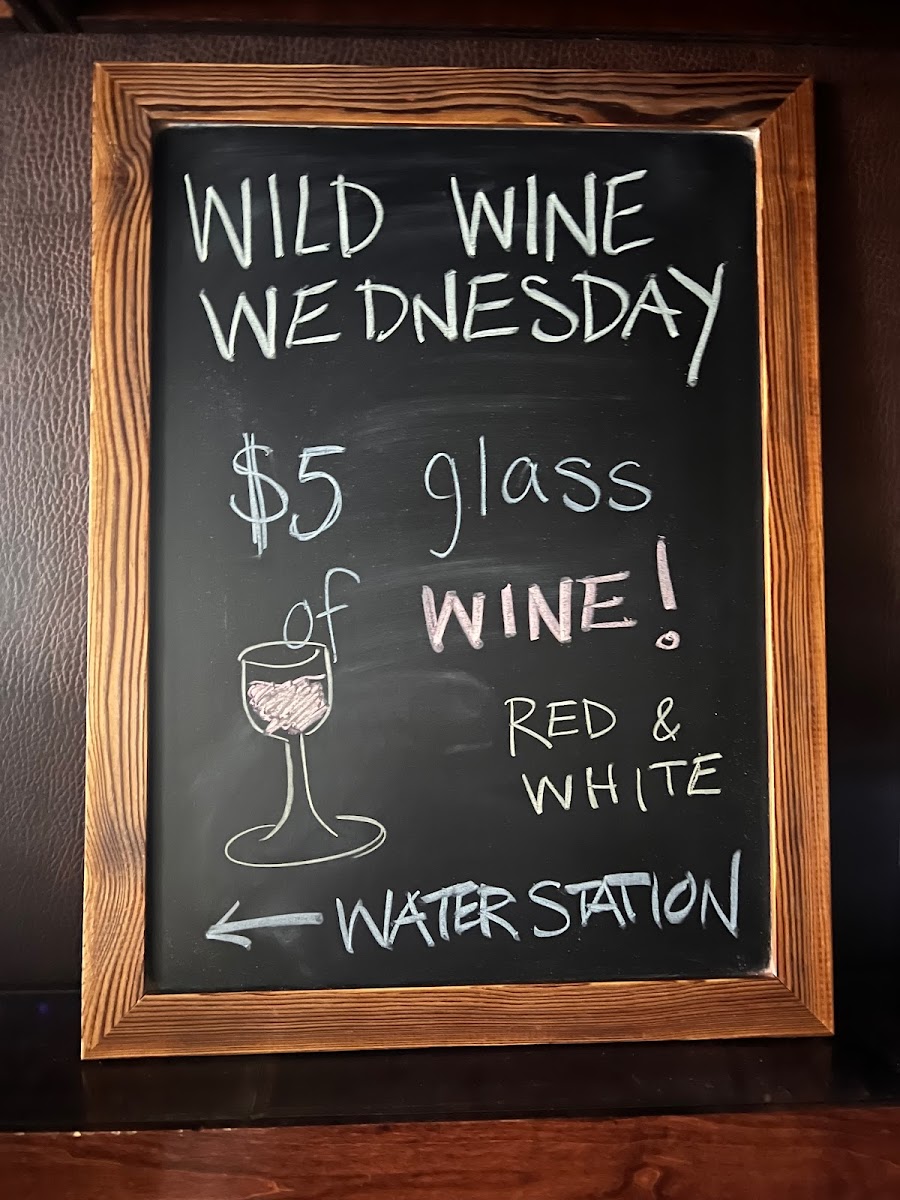 WILD WINE
WEDNESDAY
$5 glass
of WINE!
RED &
WHITE
← WATER STATION